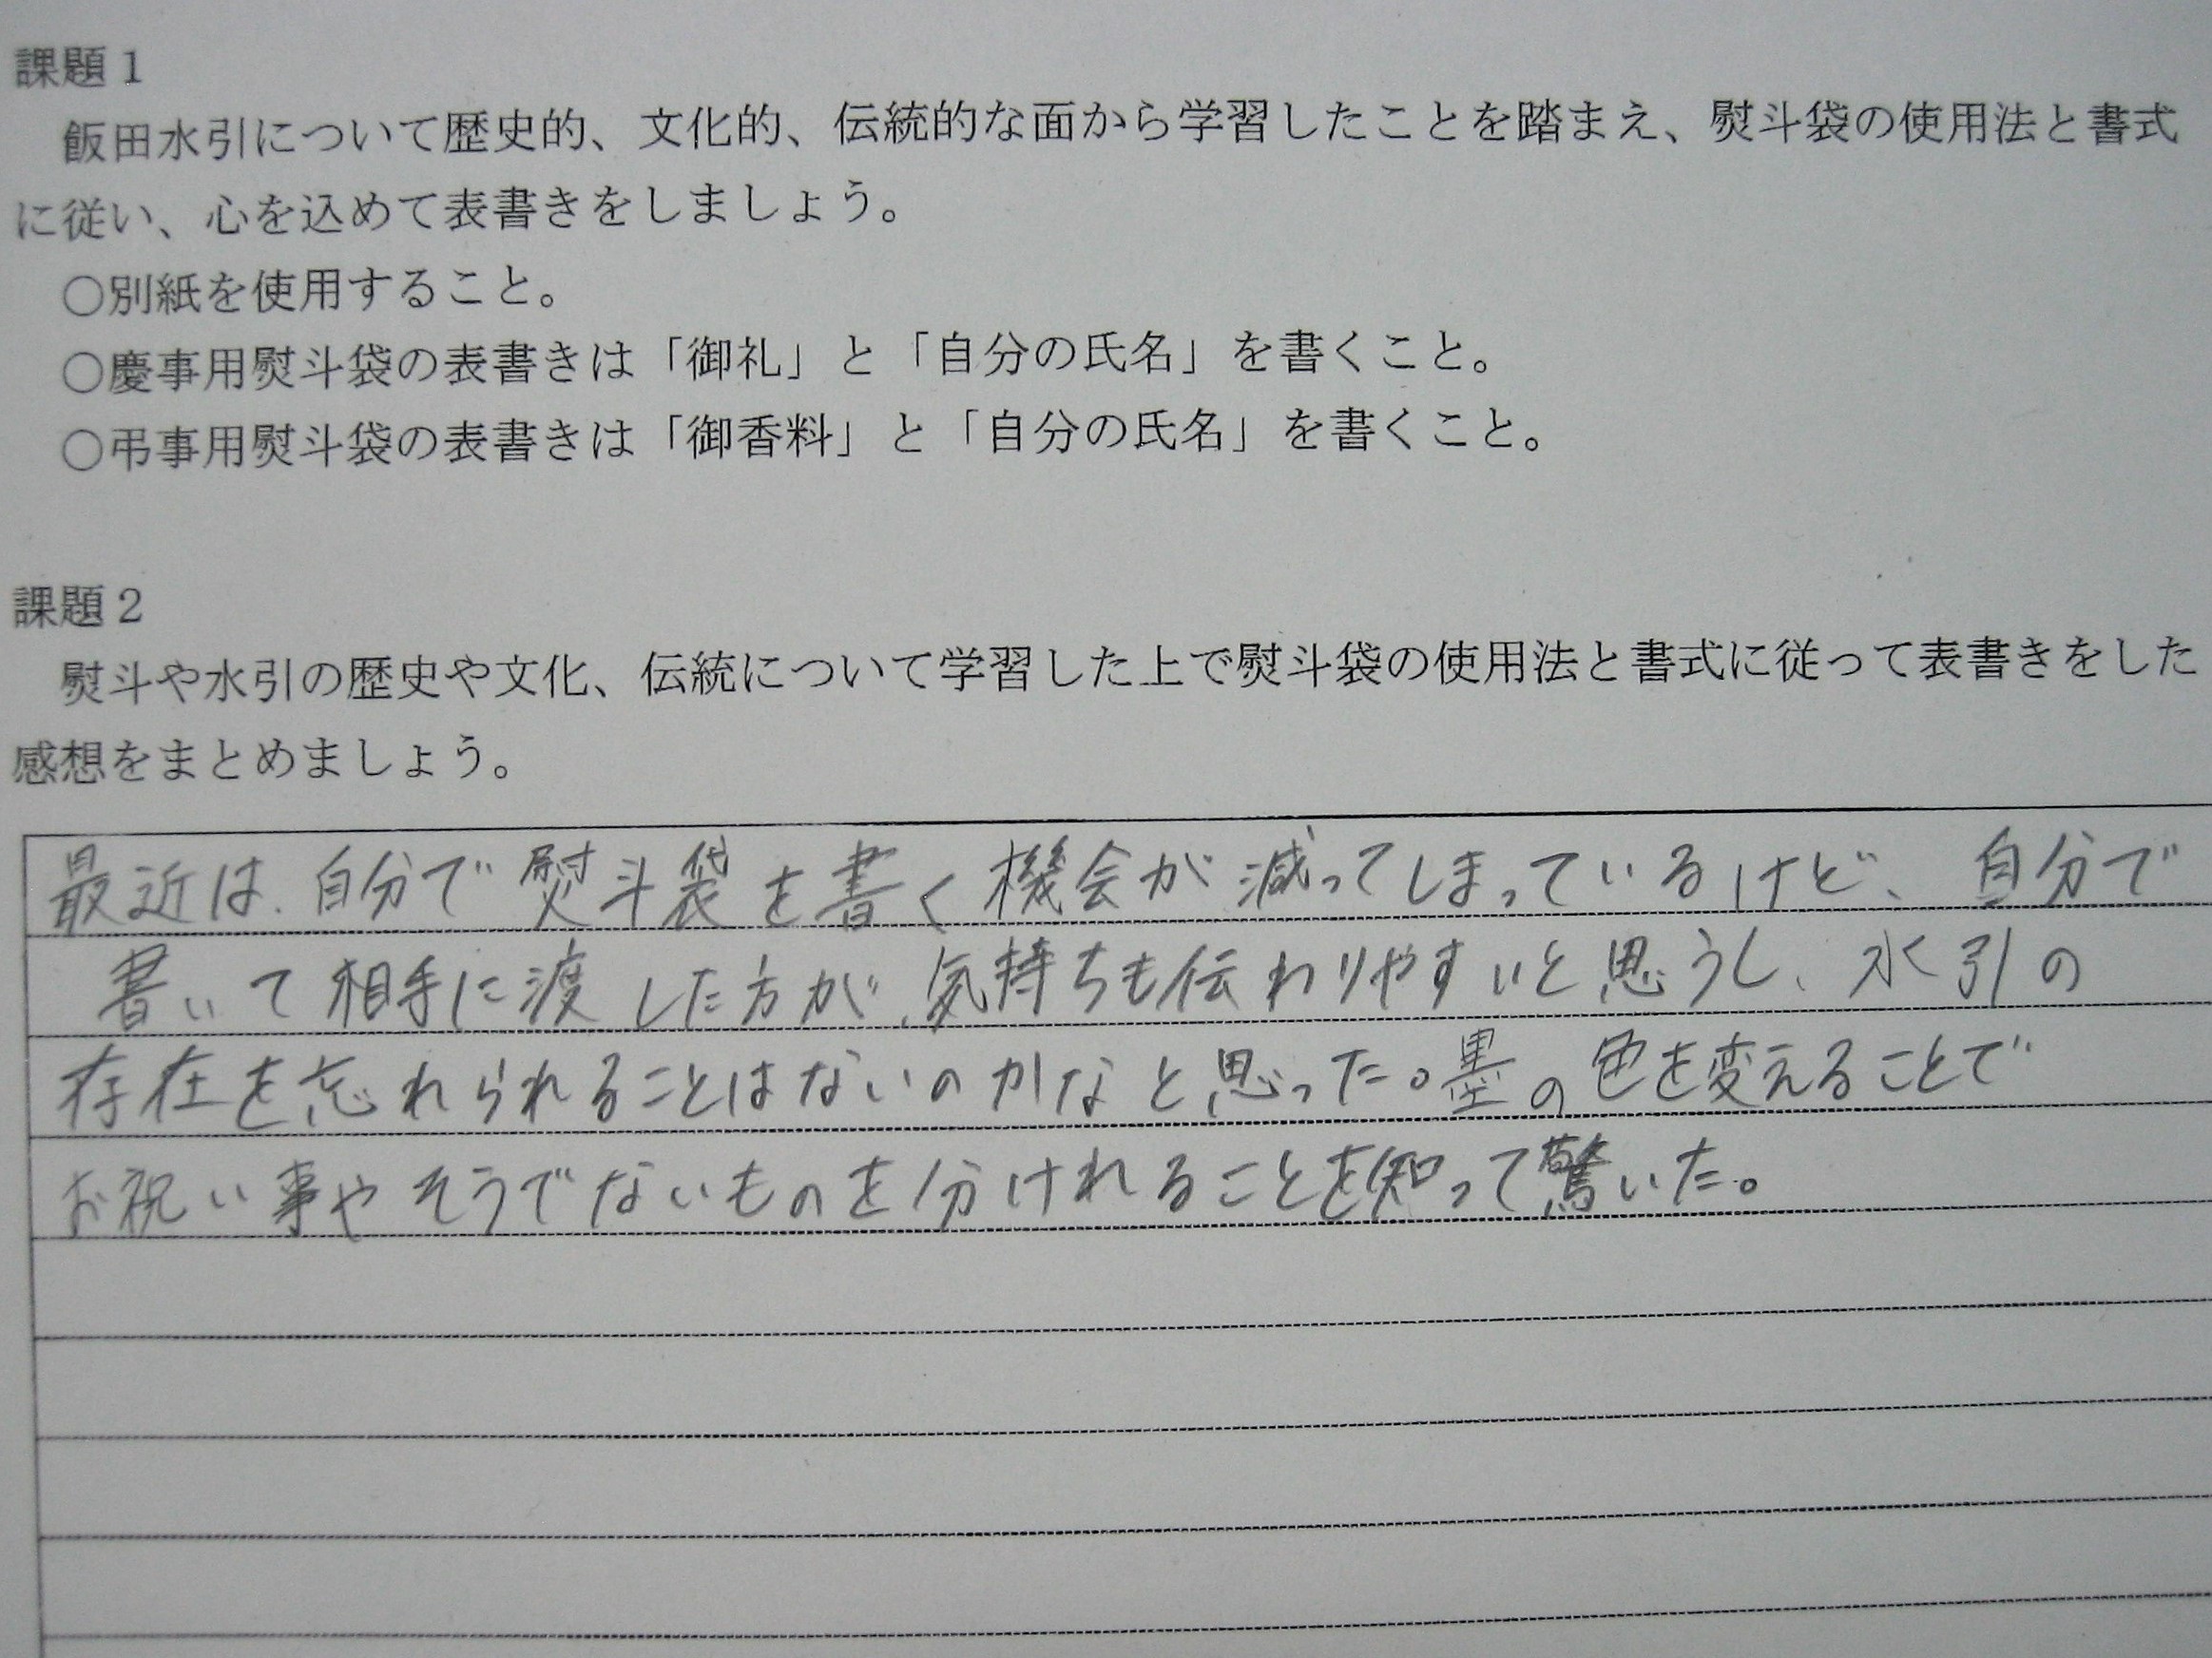 課題1
飯田水引について歴史的、文化的、伝統的な面から学習したことを踏まえ、熨斗袋の使用法と書式
に従い、心を込めて表書きをしましょう。
○別紙を使用すること。
○慶事用熨斗袋の表書きは「御礼」と「自分の氏名」を書くこと。
○弔事用熨斗袋の表書きは「御香料」と「自分の氏名」を書くこと。
課題2
熨斗や水引の歴史や文化、伝統について学習した上で熨斗袋の使用法と書式に従って表書きをした
感想をまとめましょう。
最近は、自分で熨斗袋を書く機会が減ってしまっているけど、自分で
書いて相手に渡した方が、気持ちも伝わりやすいと思うし、水引の
存在を忘れられることはないのかなと思った。墨の色を変えることで
お祝い事やそうでないものを分けれることを知って驚いた。